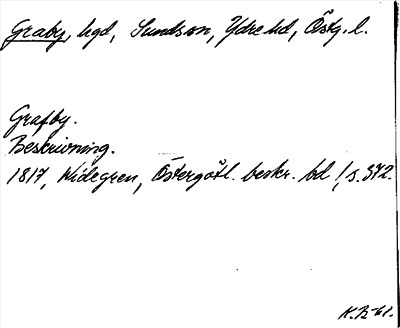 Graby, hgd, Sundsön, Ydre hd, Östg. l.
Grafby.
Beskrivning.
1817, Widegren, Östergötl. beskr. bd 1, s. 372.
K.B-61.